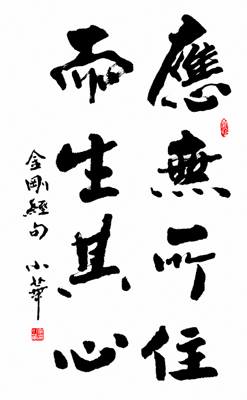 應無所住
而生其心
金剛經句 小華